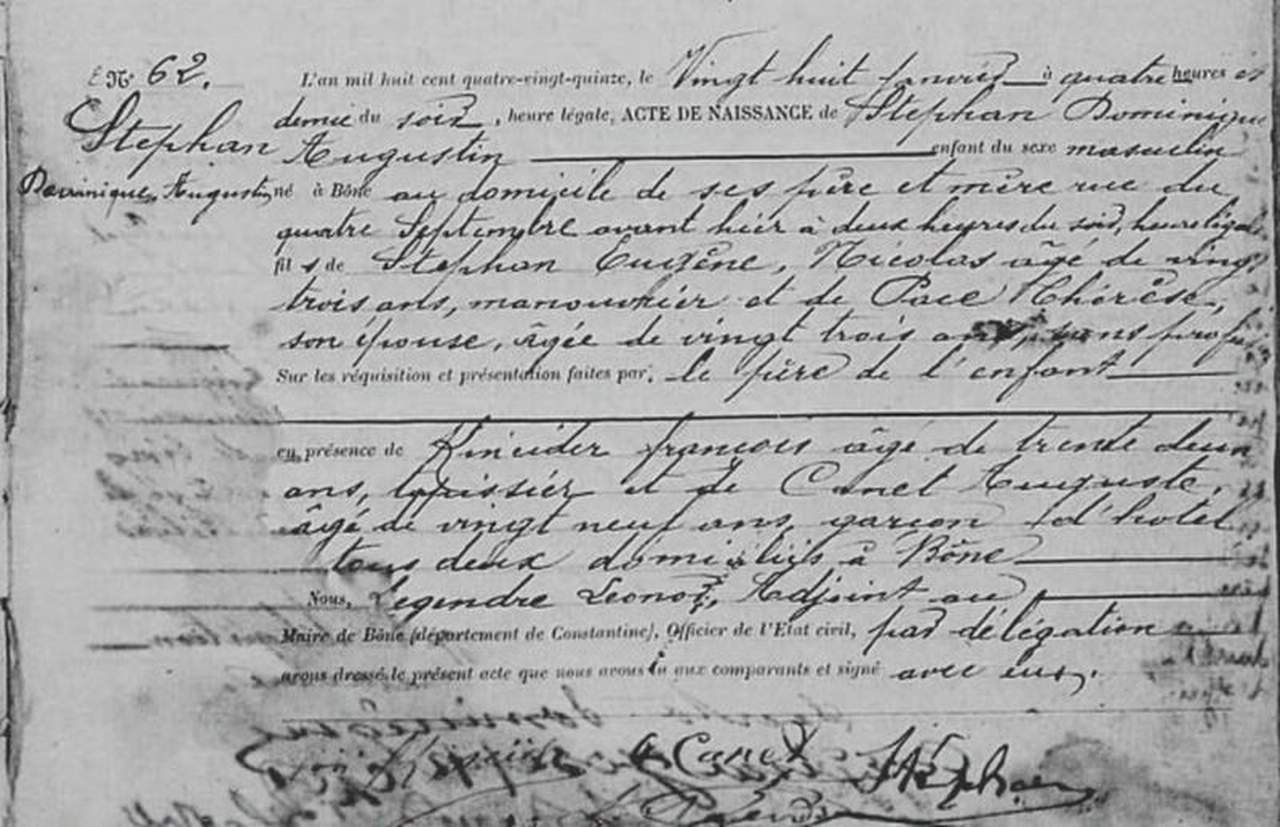 N° 62.
Stephan
Dominique, Augustin
L'an mil huit cent quatre-vingt-quinze, le Vingt huit Janvier à quatre heures et
demie du soir, heure légale, ACTE DE NAISSANCE de Stephan Dominique
Augustin enfant du sexe masculin
né à Bône au domicile de ses père et mère rue du
quatre Septembre avant hier à deux heures du soir, heure légale
fils de Stephan Eugène, Nicolas âgé de vingt
trois ans, manouvrier et de Pace Thérèse,
son épouse, âgée de vingt trois ans, sans prof
Sur les réquisition et présentation faites par, le père de l'enfant
en présence de françois âgé de trente deux
ans, tapissier et de Canet Auguste,
âgé de vingt neuf ans, garçon d'hotel
tous deux domiciliés à Bône
Nous, Legendre Leonor, Adjoint au
Maire de Bône (département de Constantine), Officier de l'Etat civil, par délégation
avons dressé le présent acte que nous avons lu aux comparants et signé avec eux.
A Canet Stephan